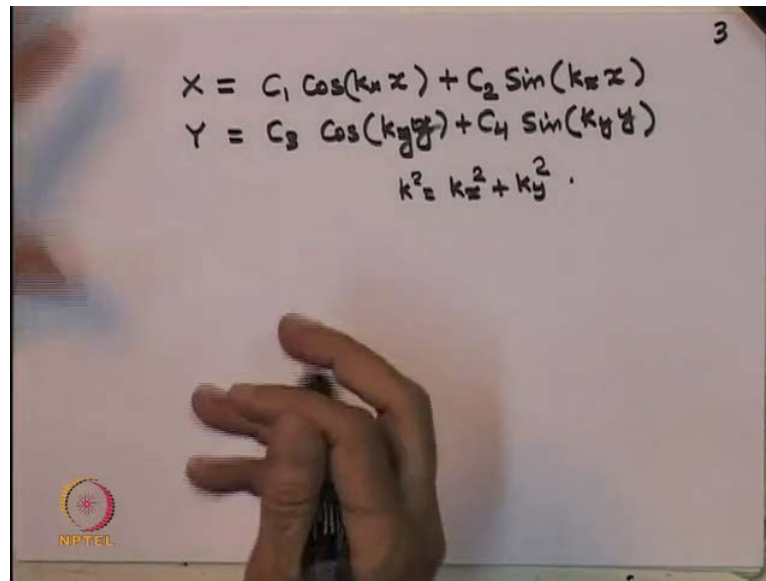 3
X = C₁ Cos(kₓ x) + C₂ Sin(kₓ x)
Y = C₃ Cos(k_y y) + C₄ Sin(k_y y)
k² = kₓ² + k_y² .
NPTEL